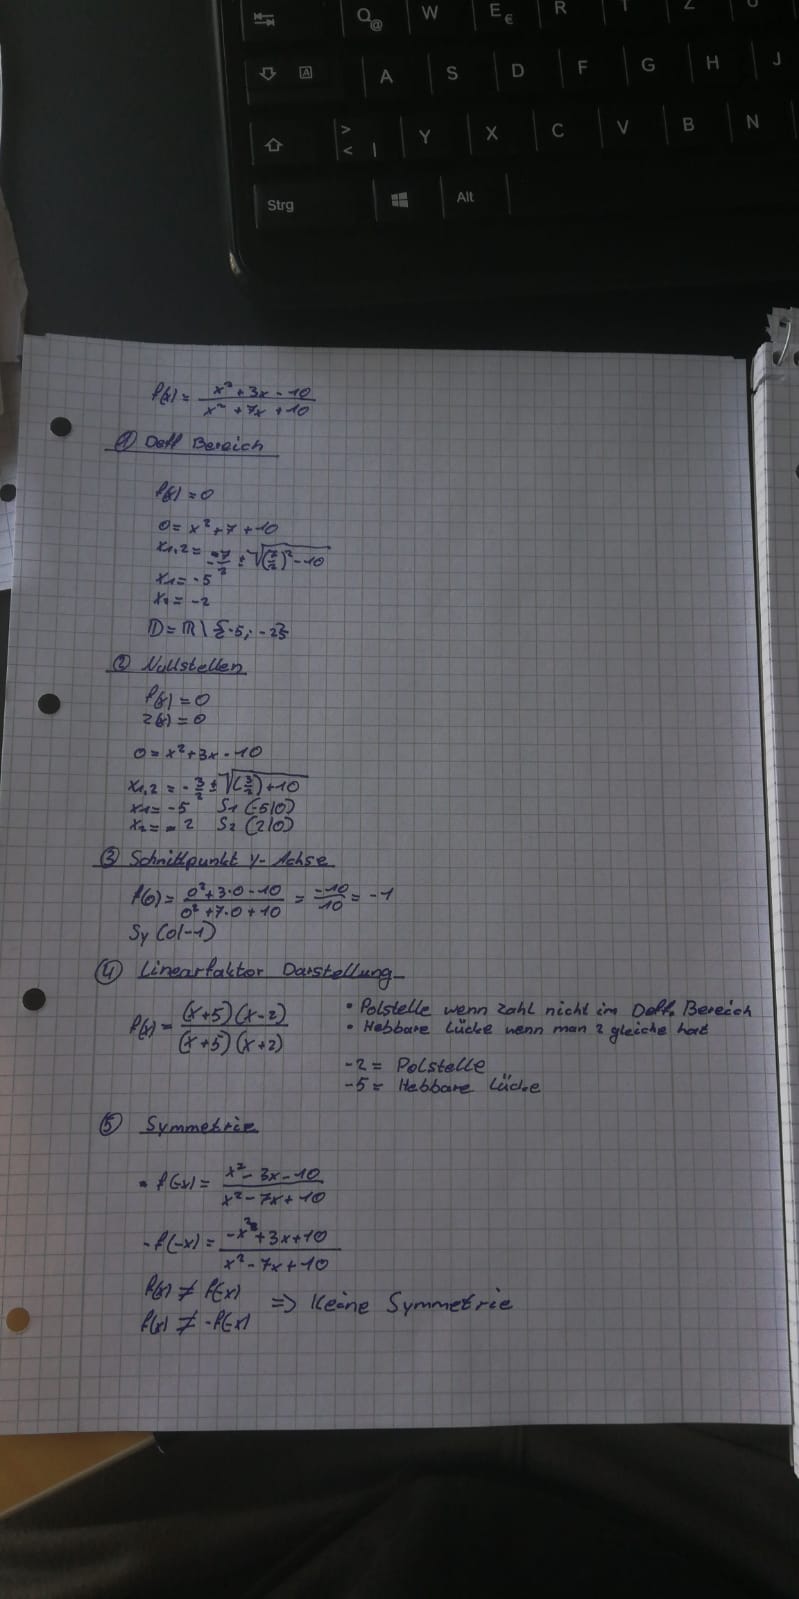 Q @ W E € R T Z U
A A S D F G H J
> < | Y X C V B N
Strg Alt
f(x) = (x² + 3x - 10) / (x² + 7x + 10)
① Deff Bereich
f(x) = 0
0 = x² + 7 + 10
x1,2 = -7/2 ± √((7/2)² - 10)
x1 = -5
x2 = -2
D = ℝ \ {-5; -2}
② Nullstellen
f(x) = 0
Z(x) = 0
0 = x² + 3x - 10
x1,2 = -3/2 ± √((3/2) + 10)
x1 = -5 S1 (-5|0)
x2 = 2 S2 (2|0)
③ Schnittpunkt y-Achse
f(0) = (0² + 3·0 - 10) / (0² + 7·0 + 10) = -10/10 = -1
Sy (0|-1)
④ Linearfaktor Darstellung
f(x) = (x+5)(x-2) / (x+5)(x+2)
• Polstelle wenn Zahl nicht im Deff. Bereich
• Hebbare Lücke wenn man 2 gleiche hat
-2 = Polstelle
-5 = Hebbare Lücke
⑤ Symmetrie
f(-x) = (x² - 3x - 10) / (x² - 7x + 10)
-f(-x) = (-x² + 3x + 10) / (x² - 7x + 10)
f(x) ≠ f(-x)
=> Keine Symmetrie
f(x) ≠ -f(-x)